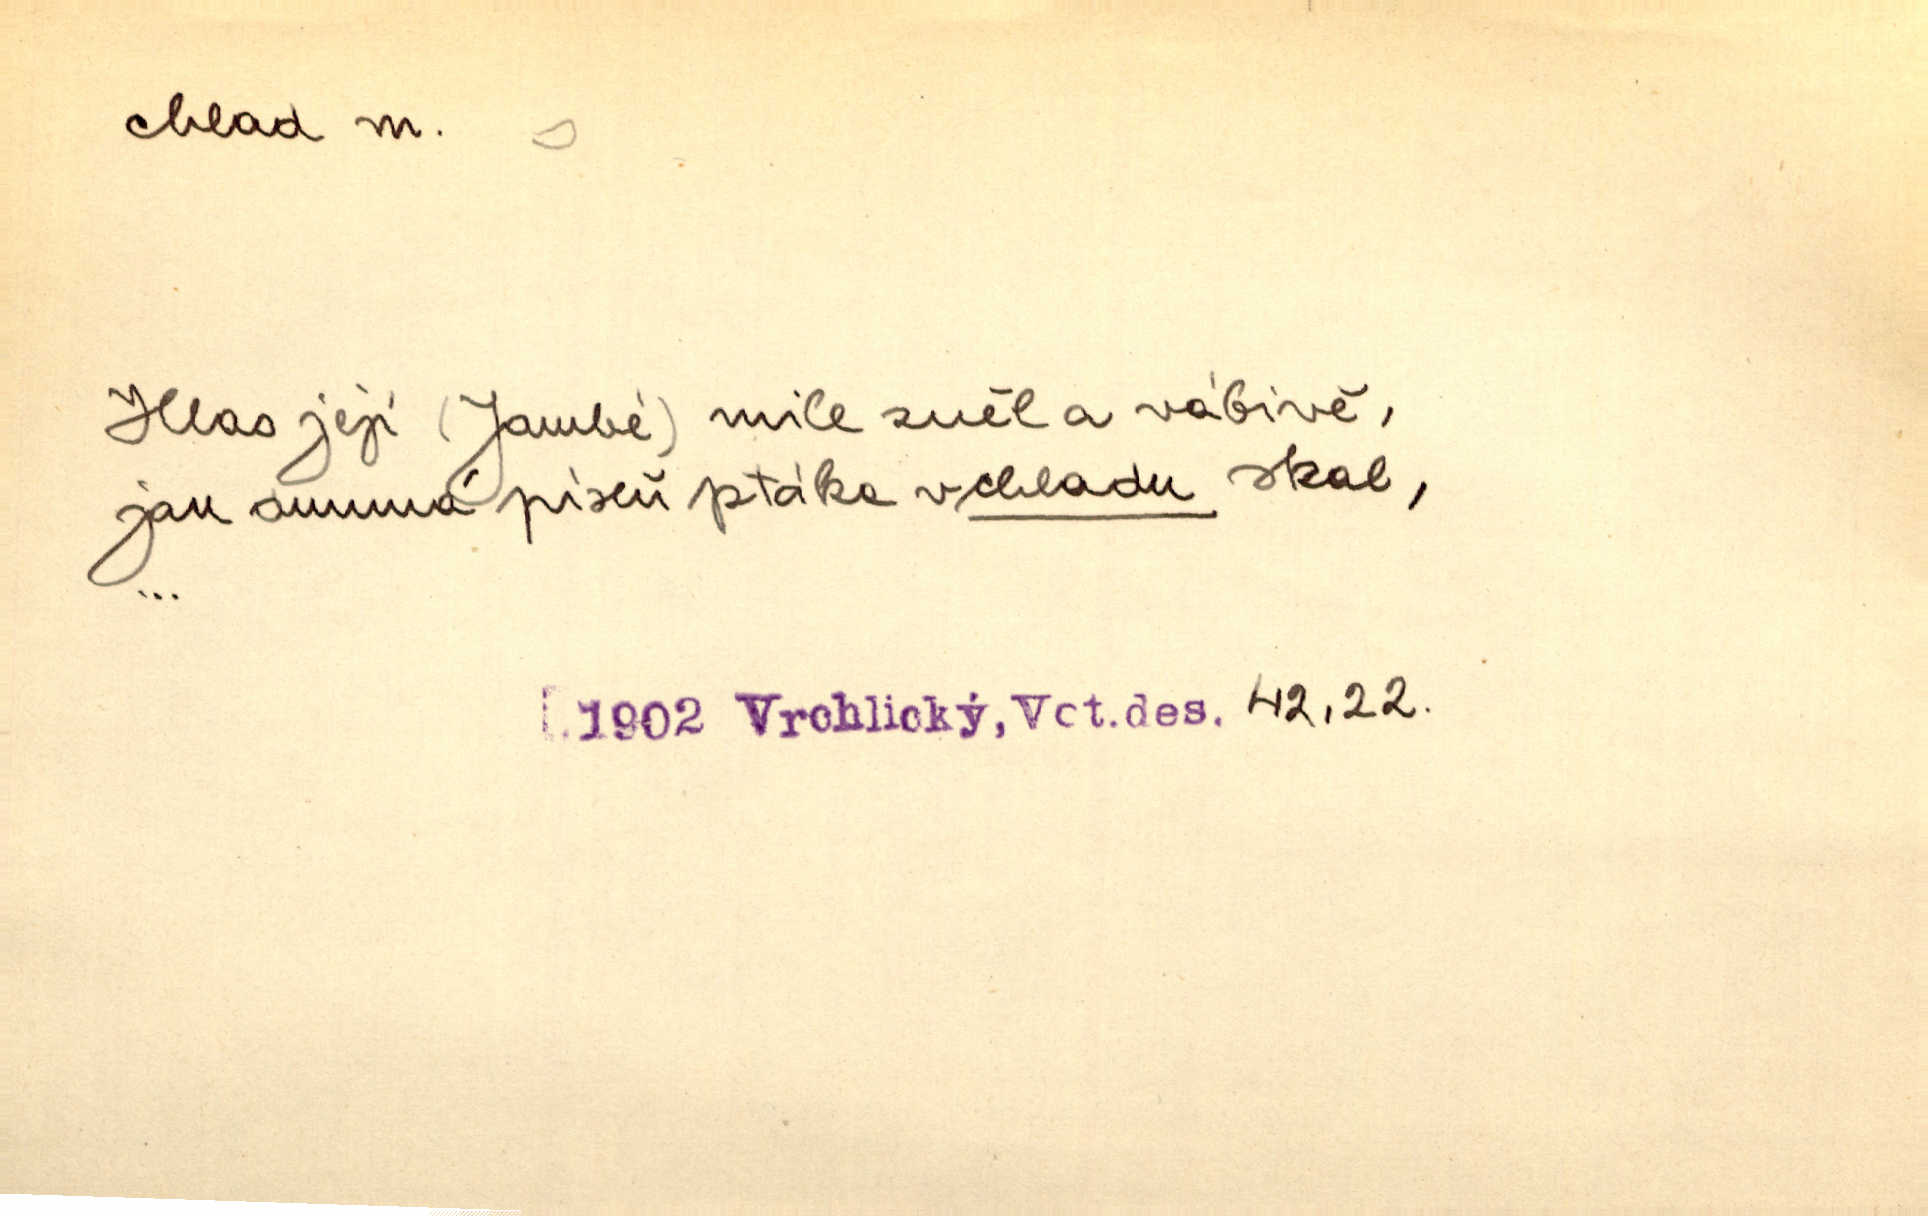 chlad m.
Hlas její (Jambé) mile zněl a vábivě,
jak surmná píseň ptáka v chladu skal,
...
1902 Vrchlický, Vct.des. 42,22.